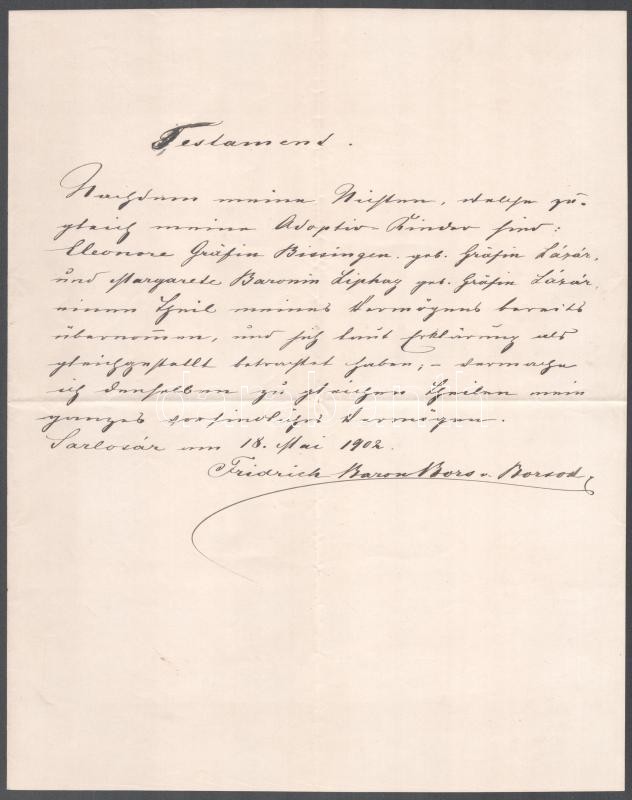 Testament.
Nachdem meine Nichten, welche zu-
gleich meine Adoptiv-Kinder sind:
Eleonore Gräfin Bissingen geb. Gräfin Lázár,
und Margarete Baronin Liphay geb. Gräfin Lázár,
einen Theil meines Vermögens bereits
übernommen, und sich laut Erklärung als
gleichgestellt betrachtet haben; – vermache
ich denselben zu gleichen Theilen mein
ganzes vorfindliches Vermögen.
Sarlosár am 18. Mai 1902.
Fridrich Baron Bors v. Borsod